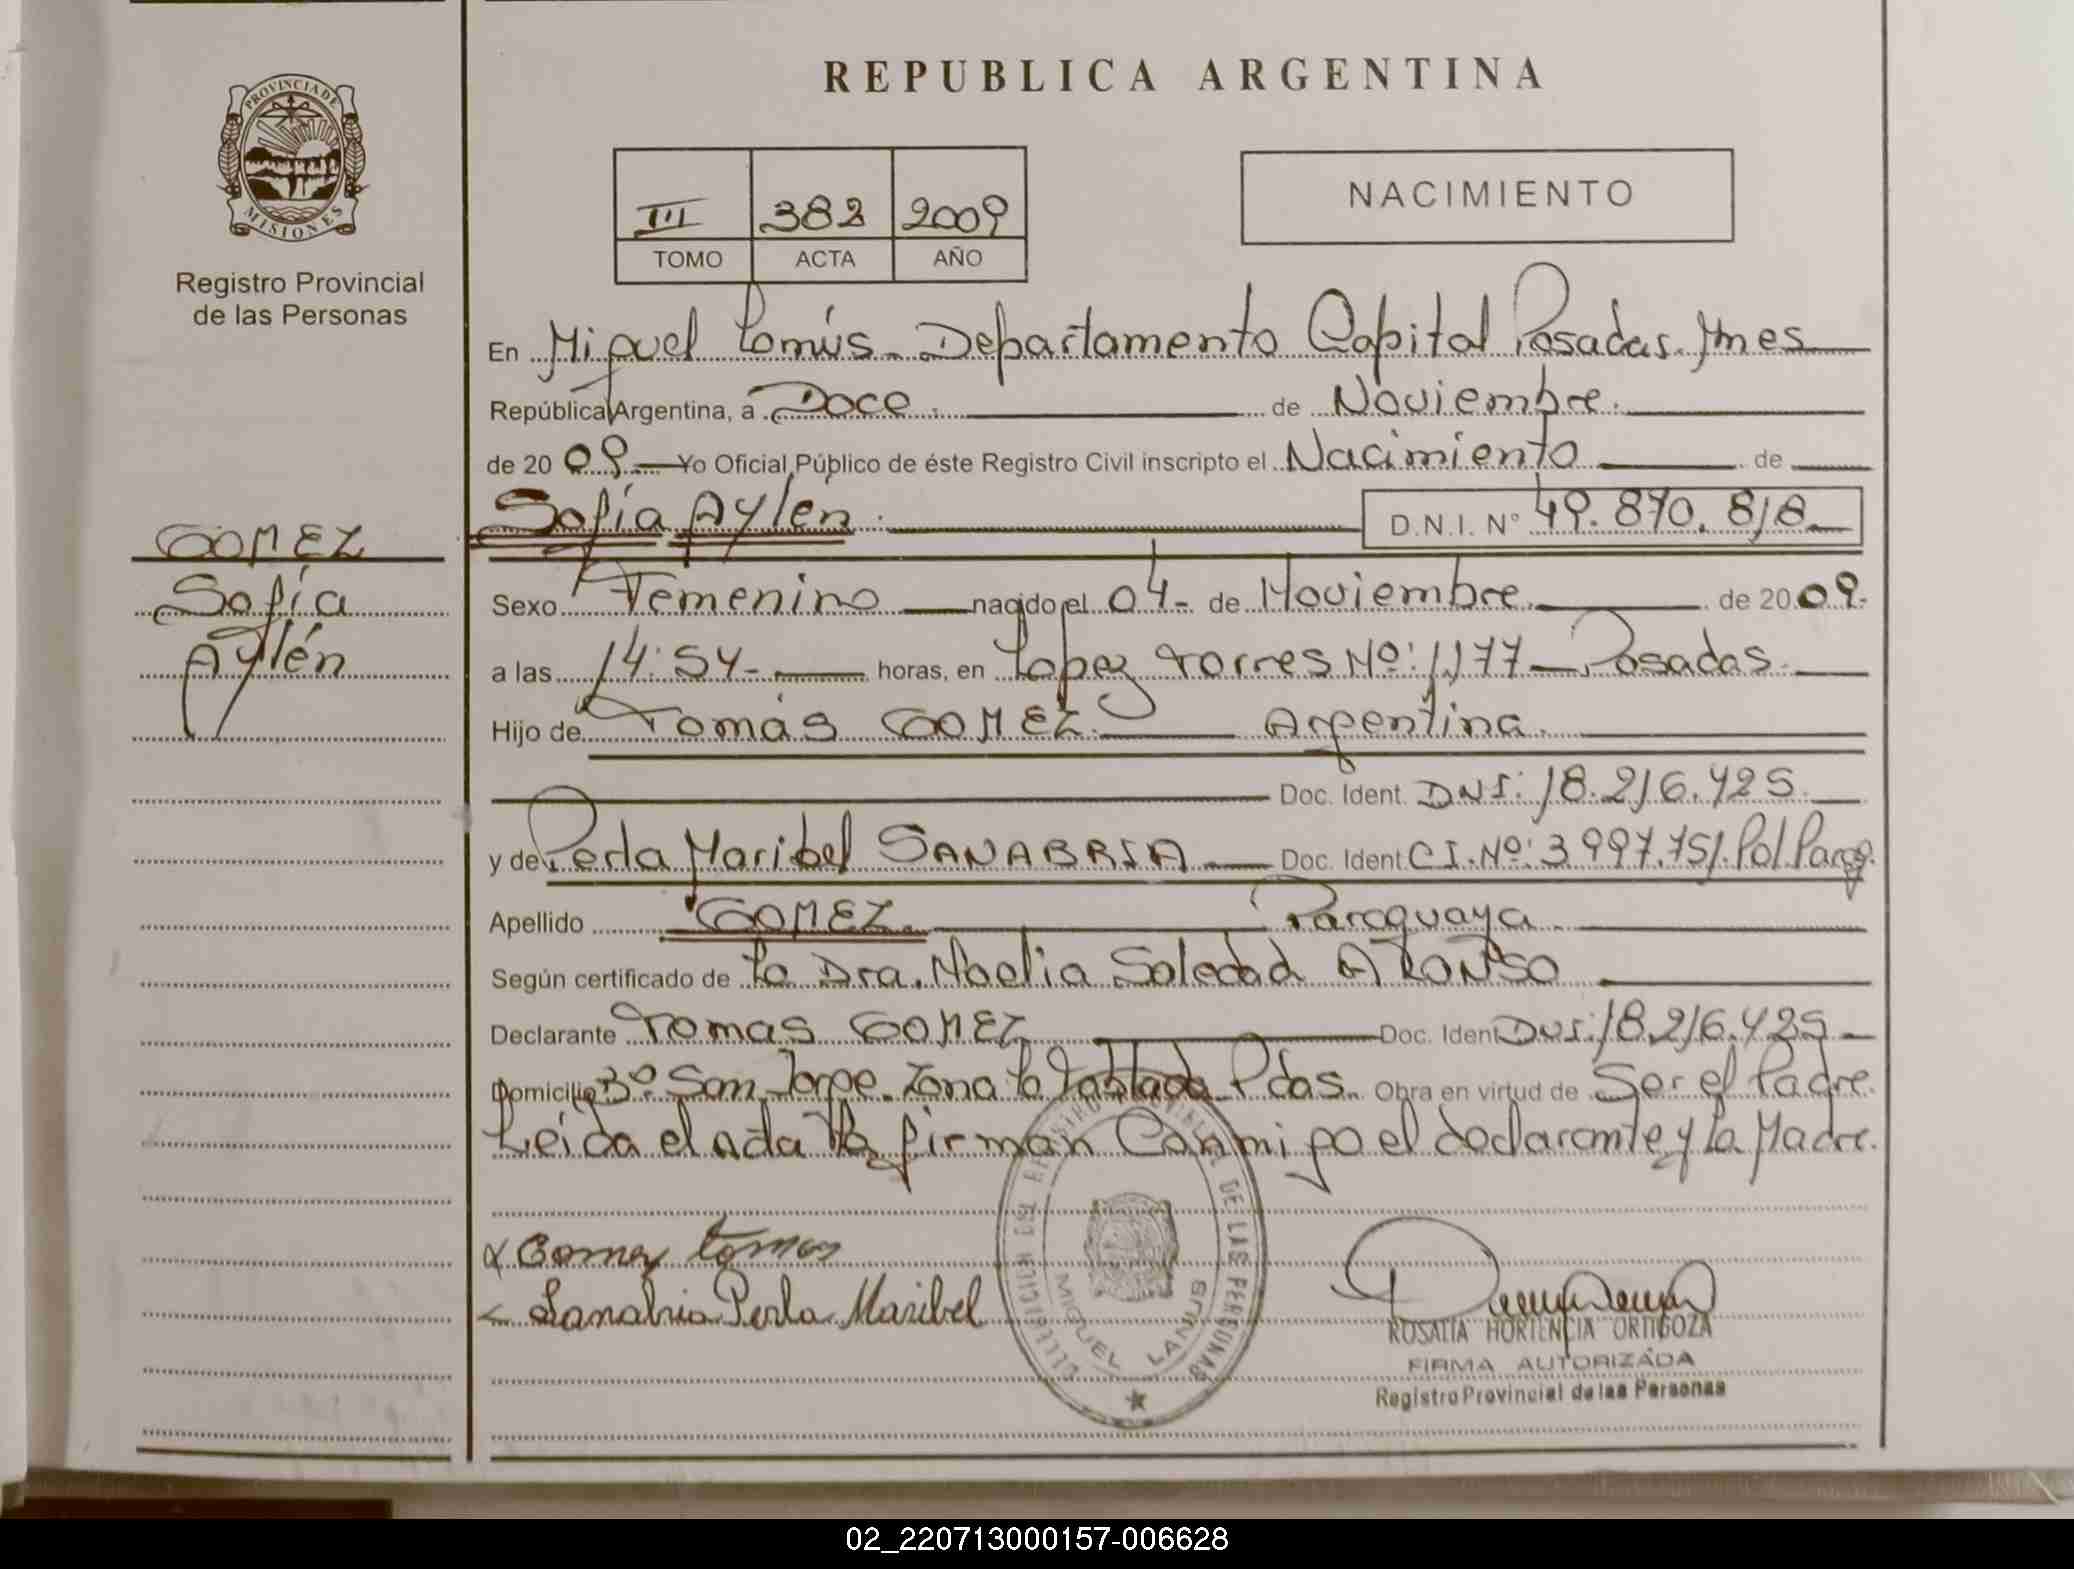 REPUBLICA ARGENTINA
PROVINCIA DE
MISIONES
Registro Provincial
de las Personas
III 382 2009
TOMO ACTA AÑO
NACIMIENTO
En Miguel Lanús. Departamento Capital Posadas. Mnes
República Argentina, a Doce de Noviembre.
de 20 09 Yo Oficial Público de éste Registro Civil inscripto el Nacimiento de
Sofía Aylén D.N.I. N° 49.870.818
GOMEZ
Sofía
Aylén
Sexo Femenino nacido el 04- de Noviembre. de 20 09.
a las 14:54- horas, en Lopez Torres Nº: 1177 - Posadas.
Hijo de Tomás GOMEZ. Argentina.
Doc. Ident. DNI: 18.216.425.
y de Perla Maribel SANABRIA Doc. Ident. CI. Nº: 3997.751. Pol Parag.
Apellido GOMEZ. Paraguaya
Según certificado de La Dra. Noelia Soledad ALONSO
Declarante Tomas GOMEZ Doc. Ident DNI: 18.216.425
Domicilio Bº San Jorge. Zona La Tablada Pdas. Obra en virtud de Ser el Padre.
Leída el acta la firman Conmigo el declarante y La Madre.
Gomez tomas
Sanabria Perla Maribel
DELEGACION DEL REGISTRO PROVINCIAL DE LAS PERSONAS
MIGUEL LANUS
ROSALIA HORTENCIA ORTIGOZA
FIRMA AUTORIZADA
Registro Provincial de las Personas
02_220713000157-006628